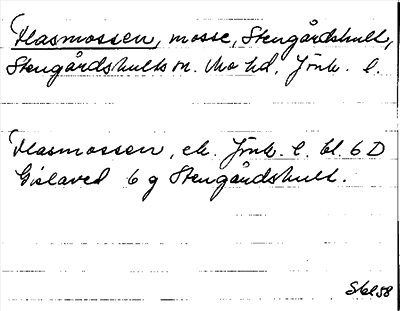 Flasmossen, mosse, Stengårdshult,
Stengårdshults sn. Mo hd. Jönk. l.
Flasmossen, ek. Jönk. l. bl 6 D
Gislaved 6 g Stengårdshult.